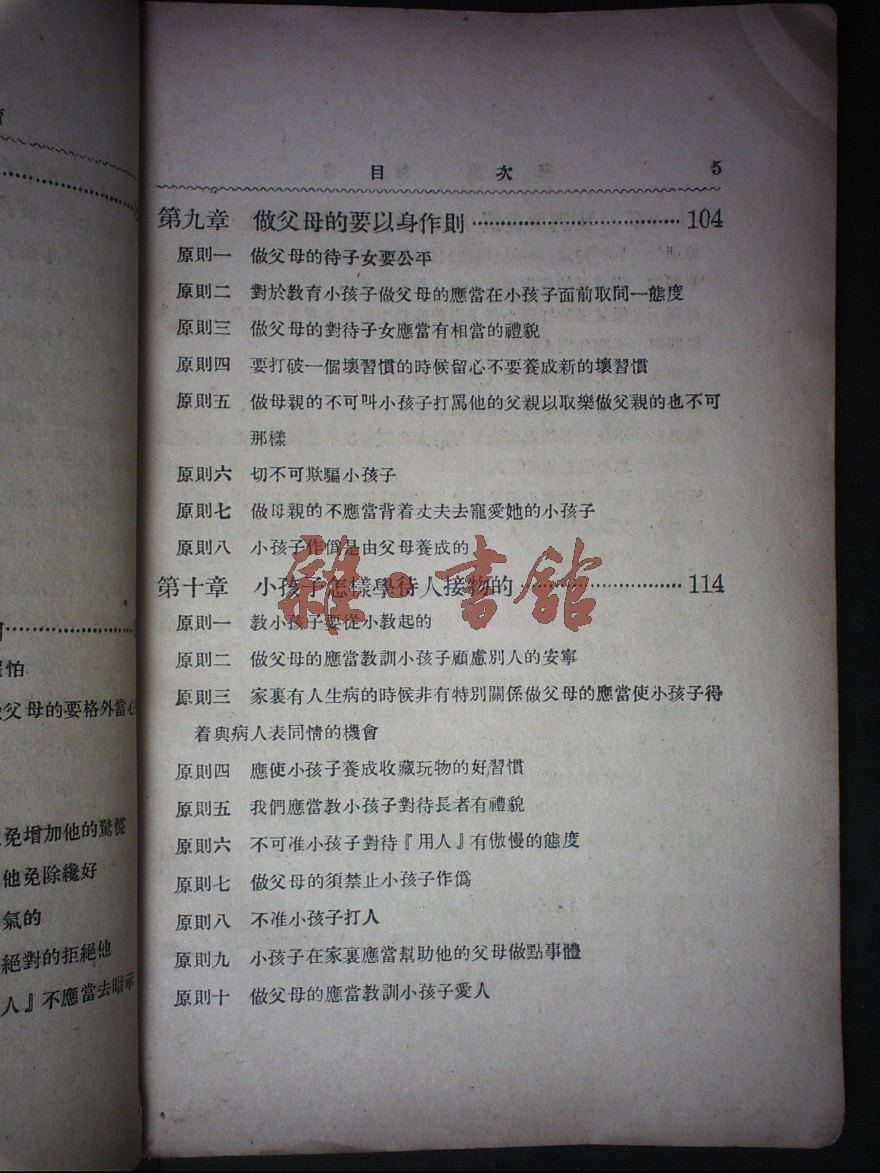 怕
父母的要格外當心
免增加他的驚慌
他免除纔好
氣的
絕對的拒絕他
人』不應當去暗示
目 次 5
第九章 做父母的要以身作則 104
原則一 做父母的待子女要公平
原則二 對於教育小孩子做父母的應當在小孩子面前取同一態度
原則三 做父母的對待子女應當有相當的禮貌
原則四 要打破一個壞習慣的時候留心不要養成新的壞習慣
原則五 做母親的不可叫小孩子打罵他的父親以取樂做父親的也不可
那樣
原則六 切不可欺騙小孩子
原則七 做母親的不應當背着丈夫去寵愛她的小孩子
原則八 小孩子作僞是由父母養成的
第十章 小孩子怎樣學待人接物的 114
原則一 教小孩子要從小教起的
原則二 做父母的應當教訓小孩子顧慮別人的安寧
原則三 家裏有人生病的時候非有特別關係做父母的應當使小孩子得
着與病人表同情的機會
原則四 應使小孩子養成收藏玩物的好習慣
原則五 我們應當教小孩子對待長者有禮貌
原則六 不可准小孩子對待『用人』有傲慢的態度
原則七 做父母的須禁止小孩子作僞
原則八 不准小孩子打人
原則九 小孩子在家裏應當幫助他的父母做點事體
原則十 做父母的應當教訓小孩子愛人
雜·書館